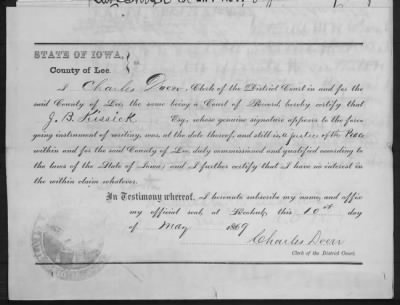 STATE OF IOWA,
County of Lee.
I Charles Doerr, Clerk of the District Court in and for the
said County of Lee, the same being a Court of Record hereby certify that
J. B. Kissick Esq., whose genuine signature appears to the fore-
going instrument of writing, was, at the date thereof, and still is, a justice of the Peace
within and for the said County of Lee, duly commissioned and qualified according to
the laws of the State of Iowa; and I further certify that I have no interest in
the within claim whatever.
In Testimony whereof, I hereunto subscribe my name, and affix
my official seal, at Keokuk, this 10th day
of May 1869
Charles Doerr
Clerk of the District Court.